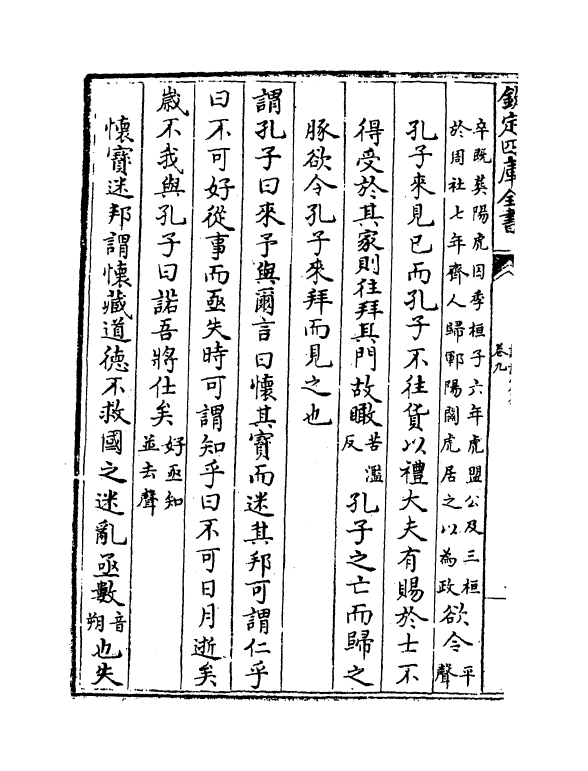 欽定四庫全書
卷九
卒既葬陽虎囚季桓子六年虎盟公及三桓
於周社七年齊人歸鄆陽關虎居之以為政欲令平聲
孔子來見已而孔子不往貨以禮大夫有賜於士不
得受於其家則往拜其門故瞰苦濫反孔子之亡而歸之
豚欲令孔子來拜而見之也
謂孔子曰來予與爾言曰懷其寶而迷其邦可謂仁乎
曰不可好從事而亟失時可謂知乎曰不可日月逝矣
歲不我與孔子曰諾吾將仕矣好亟知並去聲
懷寶迷邦謂懷藏道德不救國之迷亂亟數音朔也失